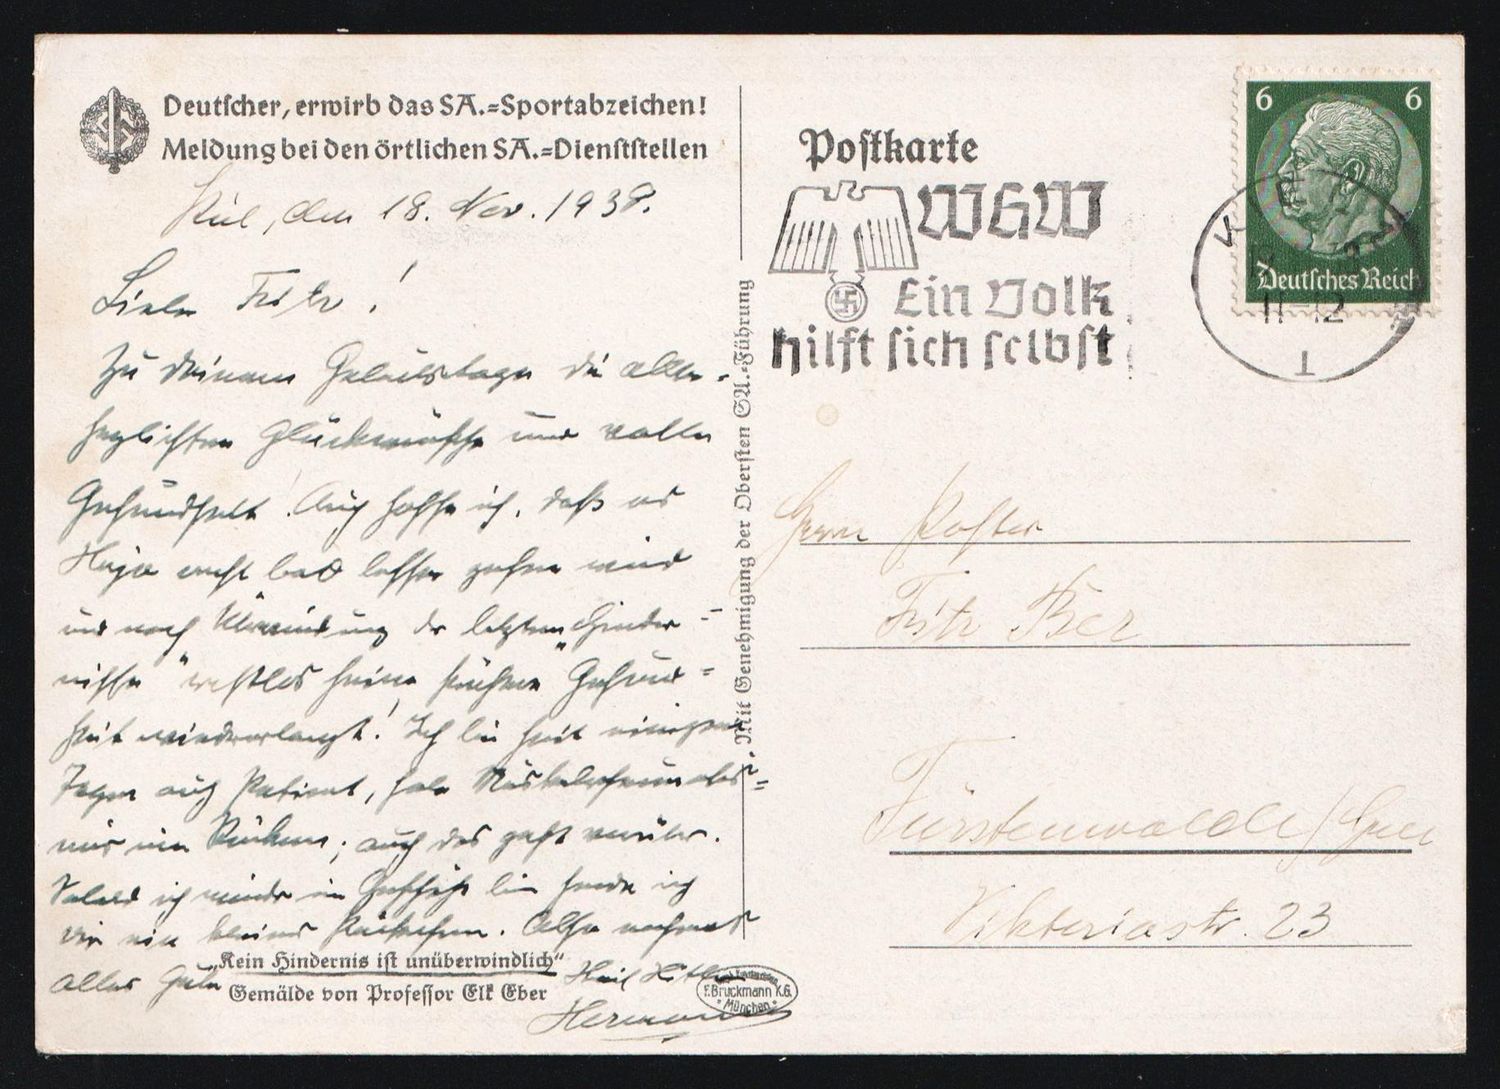 Deutscher, erwirb das SA.=Sportabzeichen!
Meldung bei den örtlichen SA.=Dienststellen
Kiel, den 18. Nov. 1938.
Lieber Fritz!
Zu Deinem Geburtstage die aller-
herzlichsten Glückwünsche und volle
Gesundheit! Auch hoffe ich, daß es
recht bald besser gehen wird
und nach Überwindung der letzten Hinder=
nisse "restlos seine frühere" Gesund=
heit wiedererlangt! Ich bin seit einigen
Tagen auch Patient, habe Muskelrheumatis=
mus im Rücken; auch das geht vorüber.
Sobald ich wieder im Geschäft bin sende ich
Dir ein kleines Päckchen. Also nochmals
alles Gute Heil Hitler
Hermann
„Kein Hindernis ist unüberwindlich“
Gemälde von Professor Elk Eber
F. Bruckmann K.G.
München
Mit Genehmigung der Obersten SA.=Führung
Postkarte
WHW
Ein Volk
hilft sich selbst
6 6
Deutsches Reich
11-12
1
Herrn
Fritz
Fürstenwalde/Spree
Viktoriastr. 23